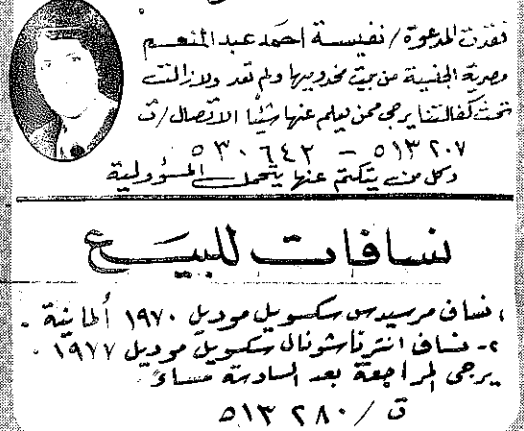 فقدت المدعوة / نفيسة احمد عبد المنعم
مصرية الجنسية من بيت مخدوميها ولم تعد ولازالت
تحت كفالتنا يرجى ممن يعلم عنها شيئا الاتصال / ت
٥١٣٢٠٧ – ٥٣٠٦٤٢
وكل من يتكتم عنها يتحمل المسؤولية
نسافات للبيع
١ نساف مرسيدس سكسويل موديل ١٩٧٠ ألمانية .
٢- نساف انترناشونال سكسويل موديل ١٩٧٧ .
يرجى المراجعة بعد السادسة مساءً
ت / ٥١٣٢٨٠